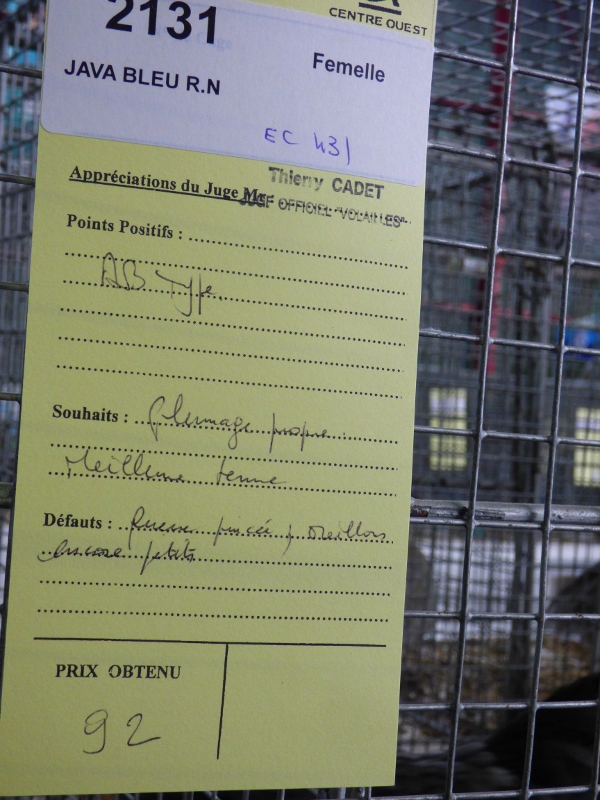 CENTRE OUEST
2131
Femelle
JAVA BLEU R.N
EC 431
Appréciations du Juge Mr
Thierry CADET
JUGE OFFICIEL "VOLAILLES"
Points Positifs :
AB Type
Souhaits : Plumage propre
Meilleure tenue
Défauts : Queue pincée, oreillons
encore petits
PRIX OBTENU
92